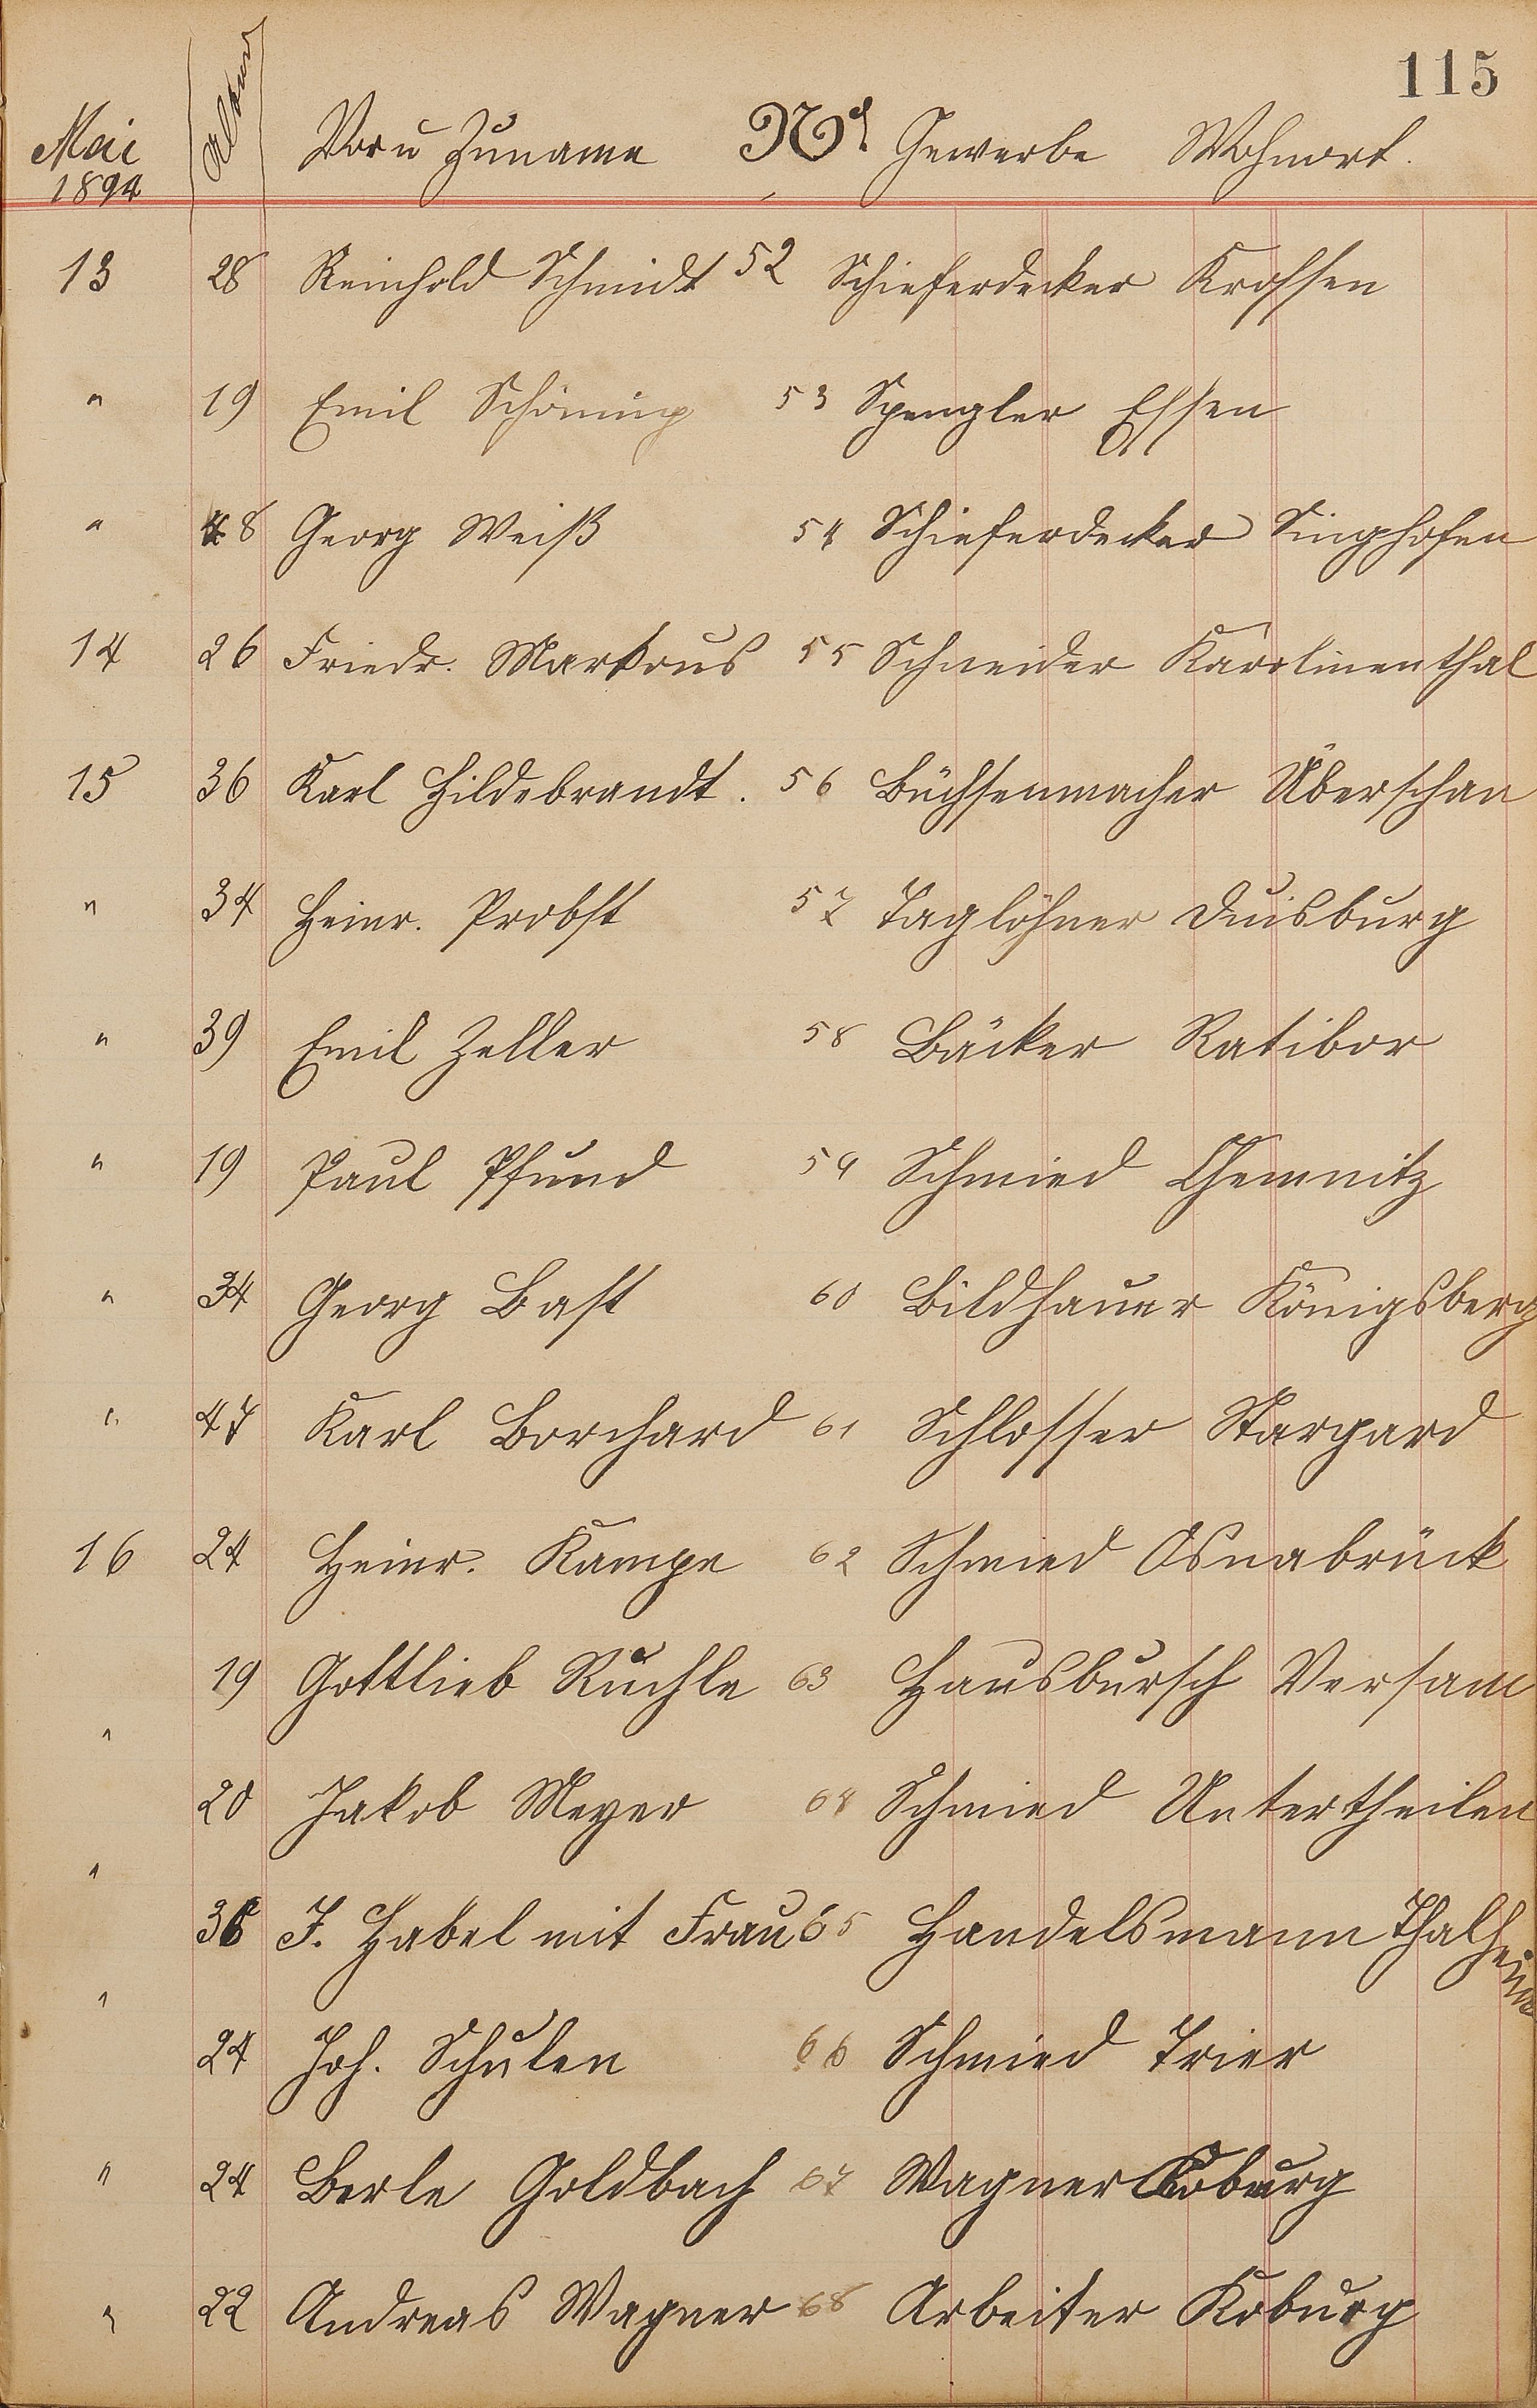 115
Mai 1894 Alter Vor u Zuname No Gewerbe Wohnort.
13 28 Reinhold Schmidt 52 Schieferdecker Krossen
" 19 Emil Schöning 53 Spengler Essen
" 48 Georg Weiß 54 Schieferdecker Singhofen
14 26 Friedr. Markous 55 Schneider Karolinenthal
15 36 Karl Hildebrandt. 56 Büchsenmacher Überschan
" 34 Heinr. Probst 57 Taglöhner Duisburg
" 39 Emil Zeller 58 Bäcker Ratibor
" 19 Paul Pfund 59 Schmied Chemnitz
" 34 Georg Bast 60 Bildhauer Königsberg
" 47 Karl Borchard 61 Schlosser Stargard
16 24 Heinr. Kampe 62 Schmied Osnabrück
" 19 Gottlieb Ruchle 63 Hausbursch Versam
" 20 Jakob Meyer 64 Schmied Untertheilen
" 36 J. Habel mit Frau 65 Handelsmann Thalheim
24 Joh. Schulen 66 Schmied Trier
" 24 Berle Goldbach 67 Wagner Coburg
" 22 Andreas Wagner 68 Arbeiter Koburg